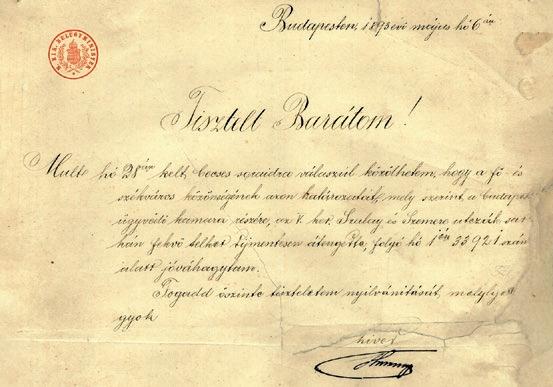 Budapesten, 1893 évi május hó 6 án
M. KIR. BELÜGYMINISTER
Tisztelt Barátom!
Mult hó 28 án kelt becses soraidra válaszul közölhetem, hogy a fő- és
székváros közönségének azon határozatát, mely szerint a budapesti
ügyvédi kamara részére, az V. ker. Szalay és Szemere utczák sar-
kán fekvő telket díjmentesen átengedte, folyó hó 1 én 33921 szám
alatt jóváhagytam.
Fogadd őszinte tiszteletem nyilvánítását, melylyel
gyok
hived